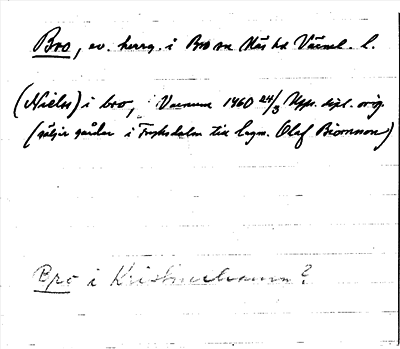 Bro, ev. herrg. i Bro sn Näs hd Värml. l.
(Nicles) i bro, 1460 24/3 Upps. dipl. orig.
(säljer gården i Fryksdalen till lagm. Olaf Biornsson)
Bro i Kristinehamn?